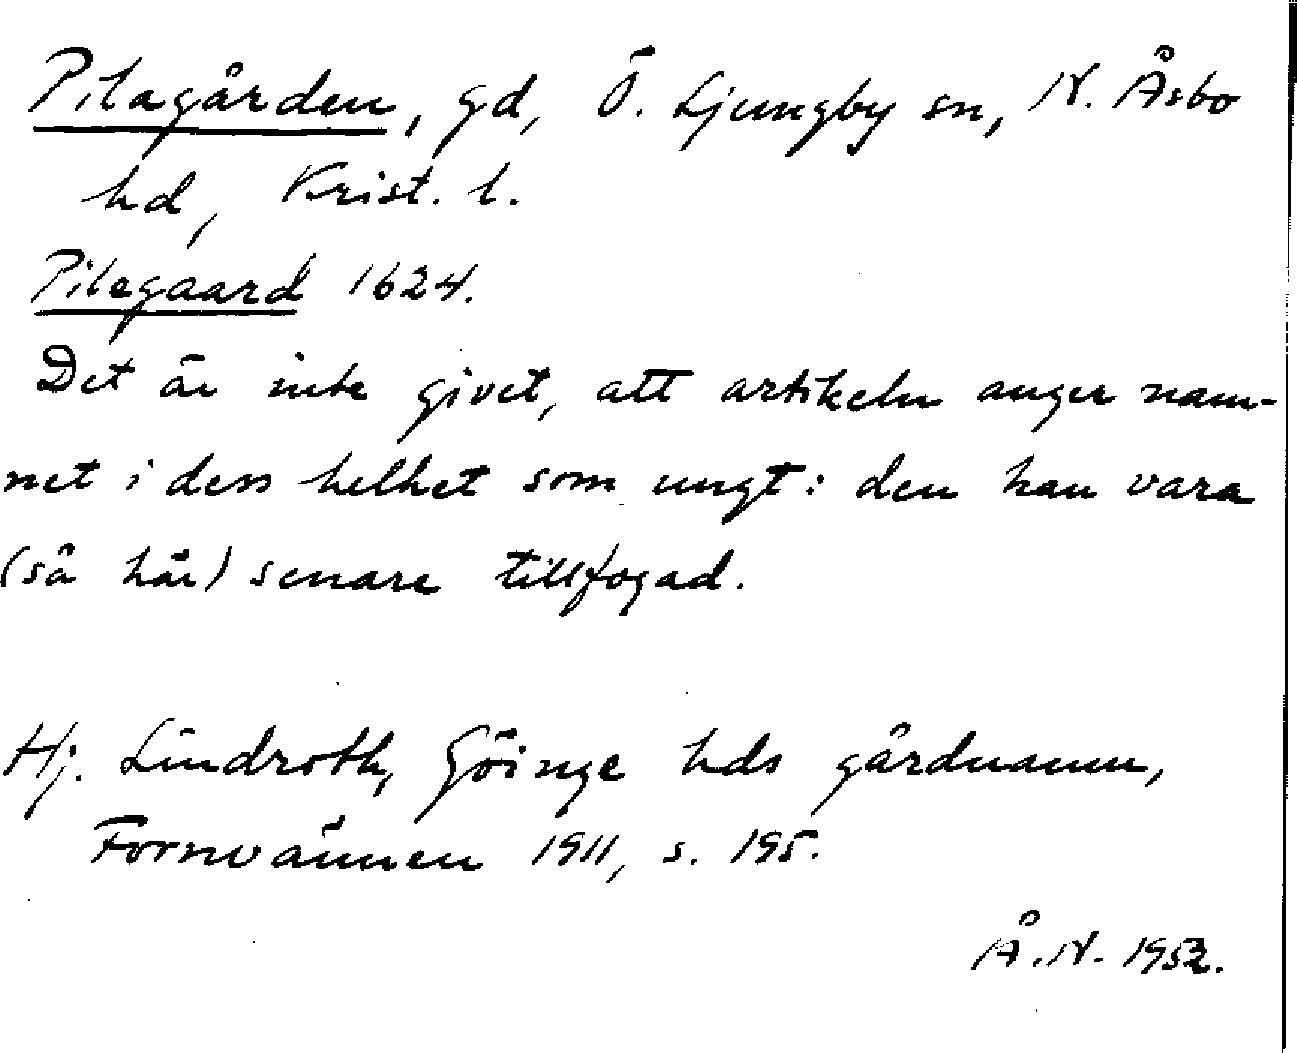 Pilagården, gd, Ö. Ljungby sn, N. Åsbo
hd, Krist. l.
Pilegaard 1624.
Det är inte givet, att artikeln anger nam-
net i dess helhet som ungt: den kan vara
(så här) senare tillfogad.
Hj. Lindroth, Göinge hds gårdnamn,
Fornvännen 1911, s. 195.
Å.N. 1952.